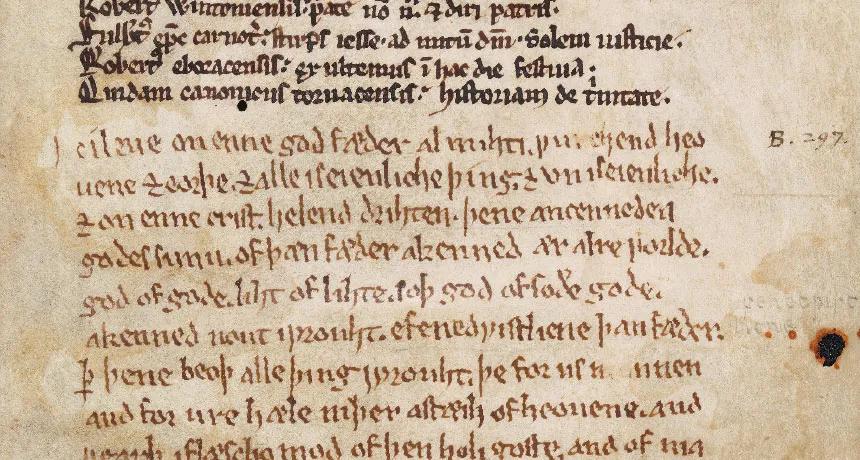 Robert' Wintoniensis: pate uo n. ⁊ diri patris.
Fulbt' ep̄c carnot': stirps iesse. ad nutū dn̄i. Solem iusticie.
Robert' eboracensis: ex ultemus ī hac die festiua.
Quidam canonicus tornacensis: historiam de t'nitate.
ileue on enne god fæder almihti. ƿurchend heo
uene ⁊ eorþe. ⁊ alle iseienliche þing. ⁊ vniseienliche.
⁊ on enne crist. helend drihten. þene ancennedan
godes sunu. of þan fæder akenned ær alre ƿorlde.
god of gode. liht of lihte. soþ god of soðe gode.
akenned nout iƿrouht. efenedƿistliene þan fæder.
þ þene beoþ alle þing iƿrouht. þe for us
and for ure hæle niþer astæih of heouene. and
ƿearþ iflæschomod of þen holi goste. and of ma
B. 297.